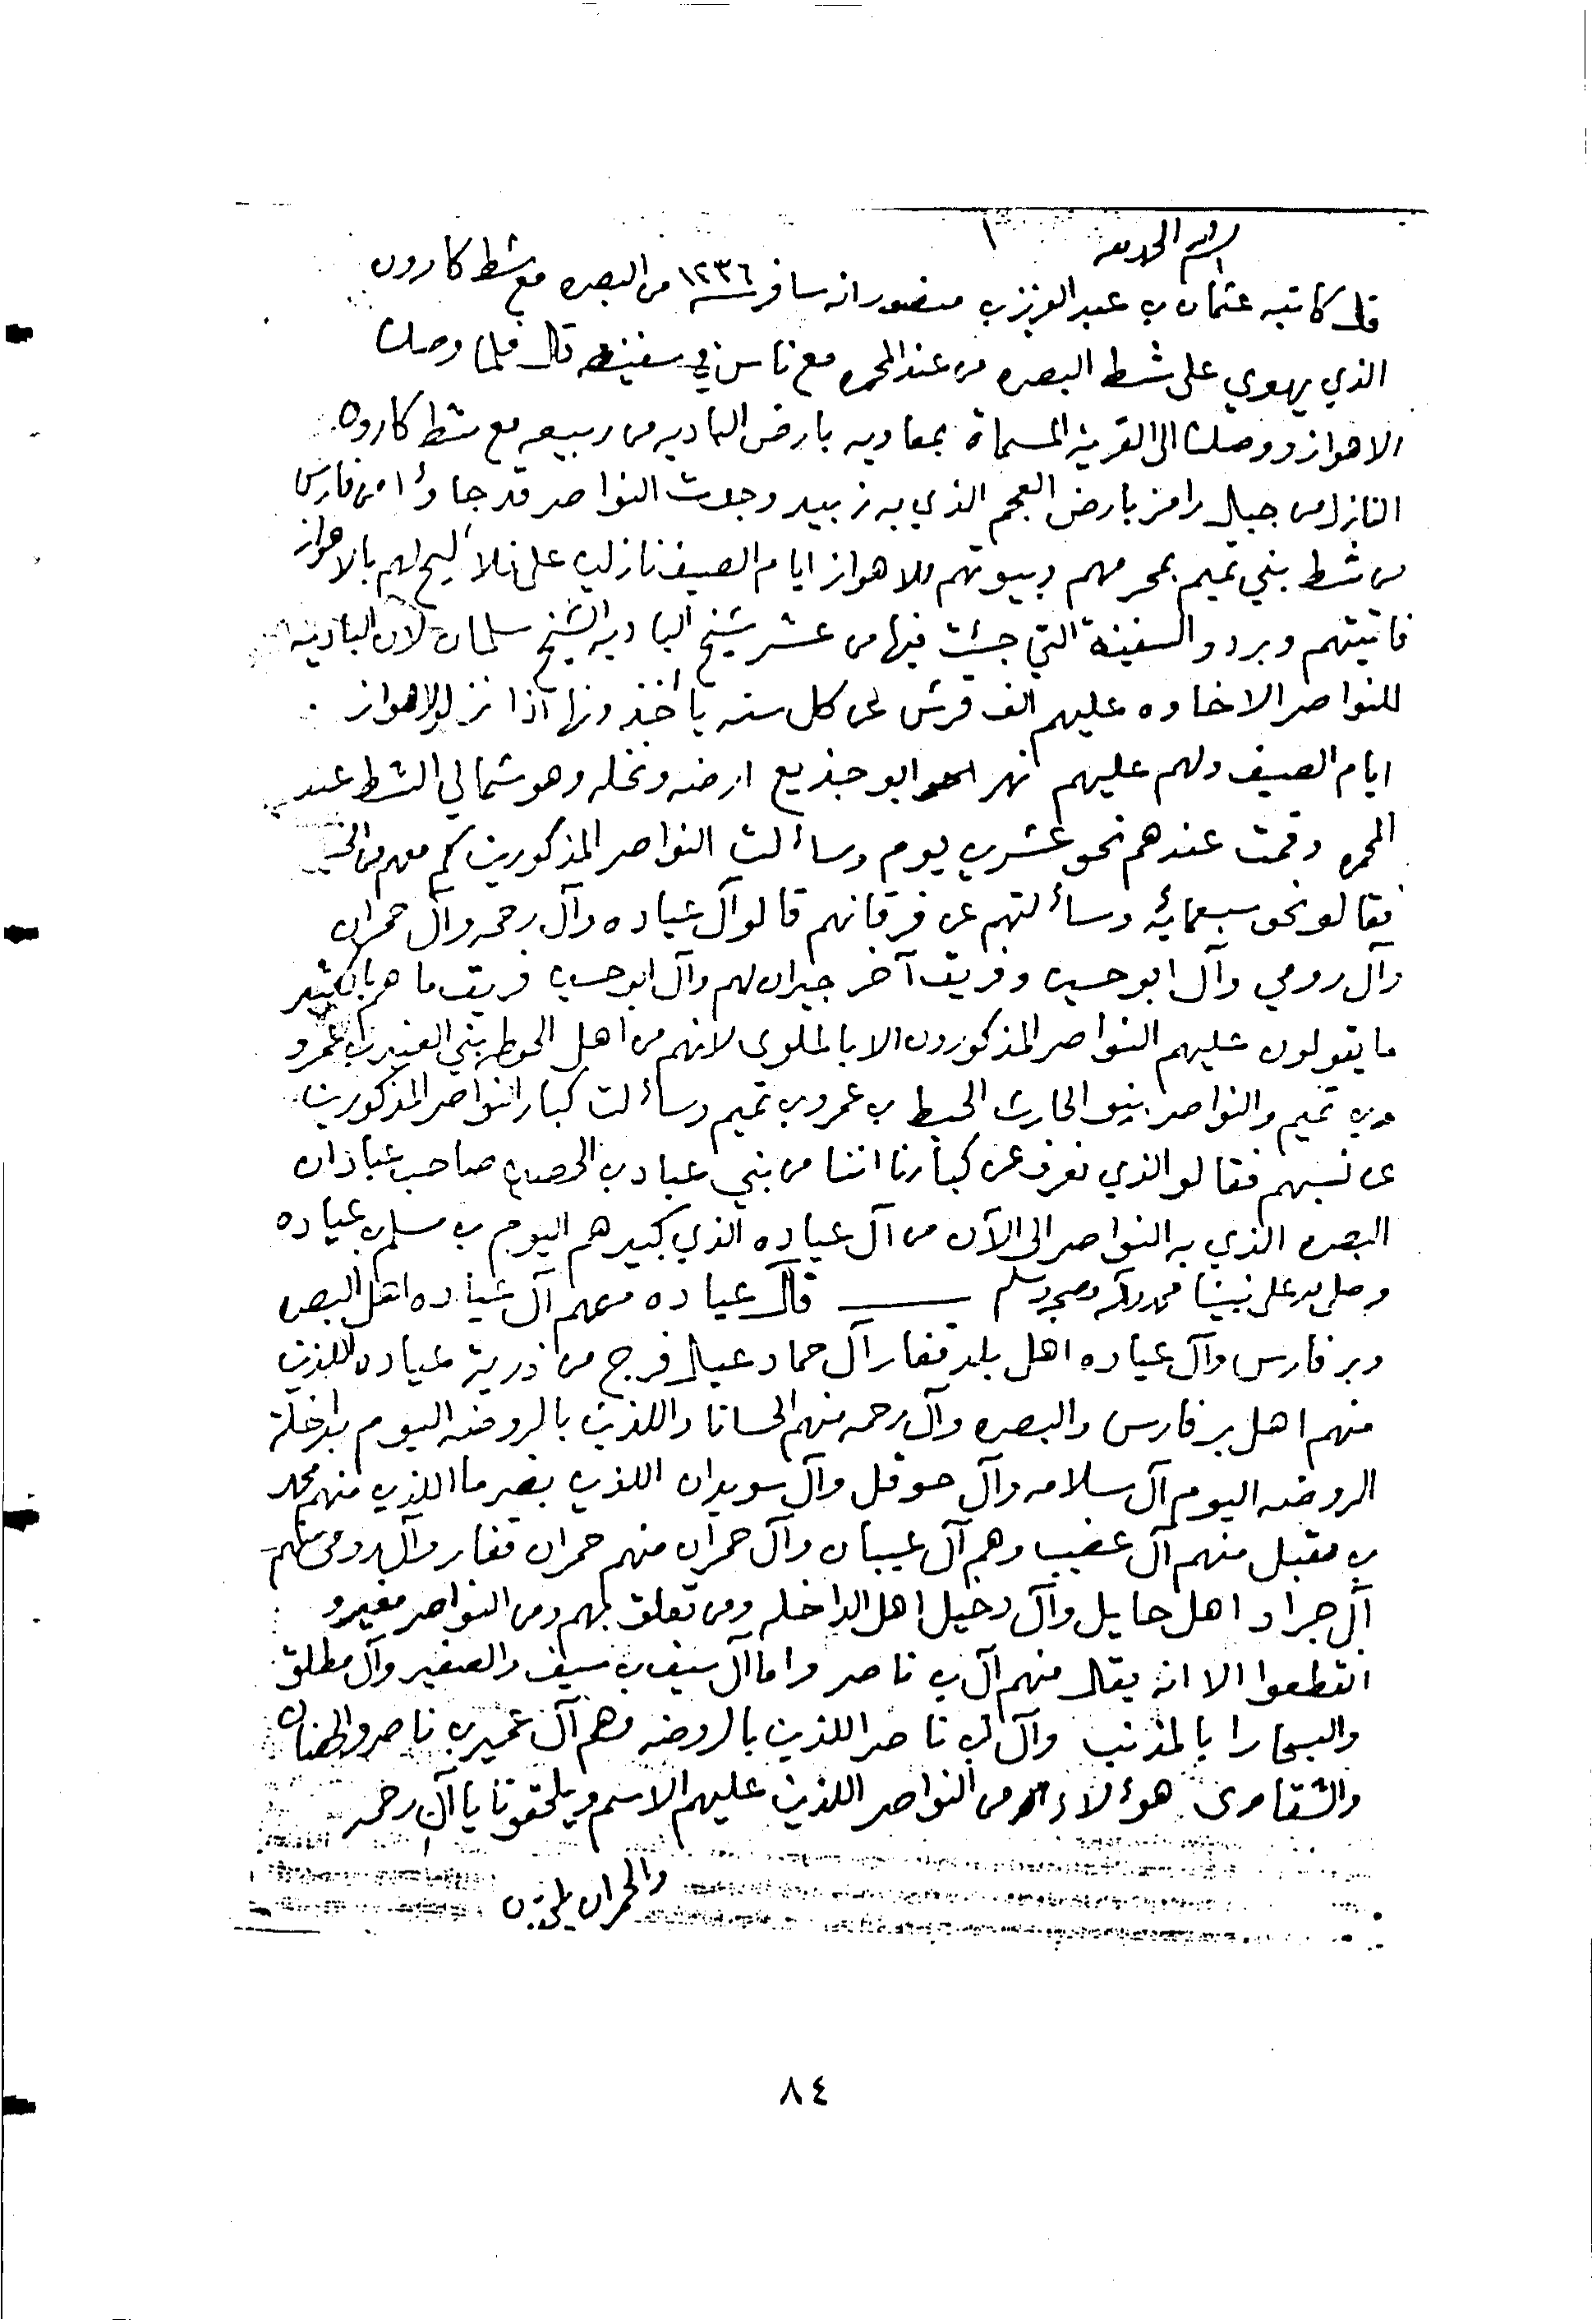 بسم الله الحمد لله
١
قال كاتبه عثمان بن عبد العزيز بن منصور انه سافر سنة ١٢٣٦ من البصره مع شط كارون
الذي يهوي على شط البصره من عند المحمره مع ناس في سفينه قال فلما وصلت
الاهواز ووصلت الى القرية المسماة بمعاويه بارض الباديه من ربيعه مع شط كارون
النازل من جبال رامز بارض العجم الذي به زبيد وجدت النواصر قد جاؤا من فارس
من شط بني تميم بحرمهم وبيوتهم للاهواز ايام الصيف نازلين على فلاليح لهم بالاهواز
فاتيتهم وبرد والسفينة التي جئت فيها من عشر شيخ الباديه الشيخ سلمان لان الباديه
للنواصر الاخاوه عليهم الف قرش على كل سنه ياخذونها اذا نزلوا الاهواز
ايام الصيف ولهم عليهم نهر ابو جذيع ارضه ونخله وهو شمالي الشط عند
المحمره وقمت عندهم نحو عشرين يوم وسألت النواصر المذكورين كم معهم من
فقالو نحو سبعمائة وسألتهم عن فرقانهم قالو آل عياده وآل رحمه وآل حمران
وآل رومي وآل ابو حسين وفريق آخر جيران لهم وآل ابو حسين فريق ما هم بكثير
ما يقولون عليهم النواصر المذكورون الا بالملوى لانهم من اهل الحوطه بني العنبر بن عمرو
بن تميم والنواصر بنو الحارث الحبط بن عمرو بن تميم وسألت كبار النواصر المذكورين
عن نسبهم فقالو الذي نعرف عن كبارنا اننا من بني عباد بن الحصين صاحب عبادان
البصره الذي به النواصر الى الآن من آل عياده الذي كبيرهم اليوم بن مسلم بن عياده
وصلى الله على نبينا محمد وآله وصحبه وسلم ـــــ قال عياده منهم آل عياده اهل البصره
وبر فارس وآل عياده اهل بلد قفار آل حماد عيال فرج من ذرية عياده اللذين
منهم اهل بر فارس والبصره وآل رحمه منهم الحسانا واللذين بالروضه اليوم بداخلة
الروضه اليوم آل سلامه وآل حوقل وآل سويدان اللذين بضرما اللذين منهم محمد
بن مقبل منهم آل عضيب وهم آل عيبان وآل حمران منهم حمران قفار وآل رومي منهم
آل جراد اهل حايل وآل دخيل اهل الداخله ومن تعلق بهم ومن النواصر مغيرو
انقطعوا الا انه يقال منهم آل بن ناصر واما آل سيف بن سيف والصغير وآل مطلق
والسحارا بالمذنب وآل بن ناصر اللذين بالروضه وهم آل عمير بن ناصر
والشقاوى هؤلاء من النواصر اللذين عليهم الاسم ويلحقونا يا آل رحمه
والحمران
٨٤